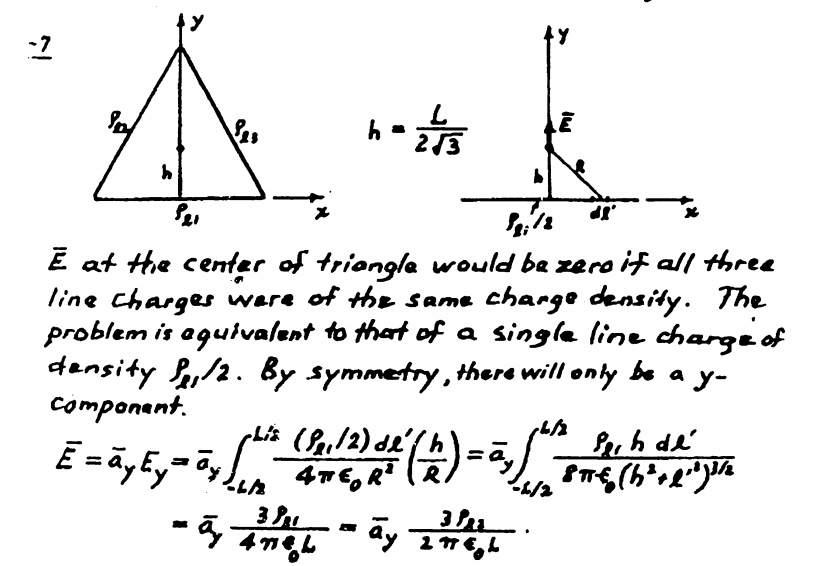 -7
y
ρℓ2
ρℓ3
h
x
ρℓ1
h = L/(2√3)
y
Ē
R
h
x
ρℓ1/2
dℓ'
Ē at the center of triangle would be zero if all three
line charges were of the same charge density. The
problem is equivalent to that of a single line charge of
density ρℓ1/2. By symmetry, there will only be a y-
component.
Ē = āy Ey = āy ∫_{-L/2}^{L/2} (ρℓ1/2) dℓ' / (4πϵ₀R²) (h/R) = āy ∫_{-L/2}^{L/2} ρℓ1 h dℓ' / (8πϵ₀(h²+ℓ'²)^{3/2})
= āy 3ρℓ1/(4πϵ₀L) = āy 3ρℓ2/(2πϵ₀L) .